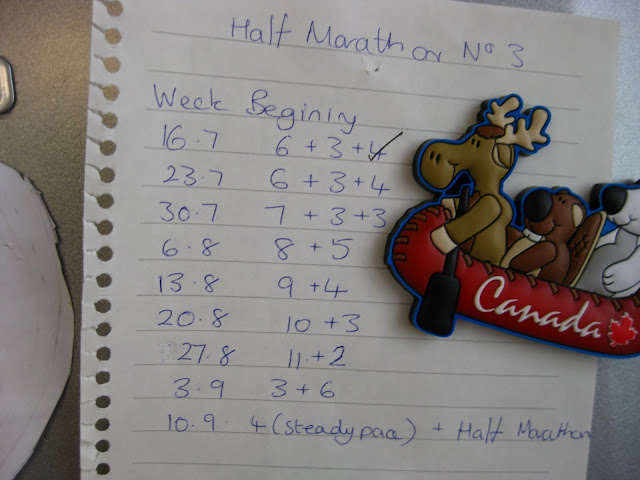 Half Marathon Nº 3
Week Begining
16.7 6 + 3 + 4 ✓
23.7 6 + 3 + 4
30.7 7 + 3 + 3
6.8 8 + 5
13.8 9 + 4
20.8 10 + 3
27.8 11 + 2
3.9 3 + 6
10.9. 4 (steady pace) + Half Marathon
Canada